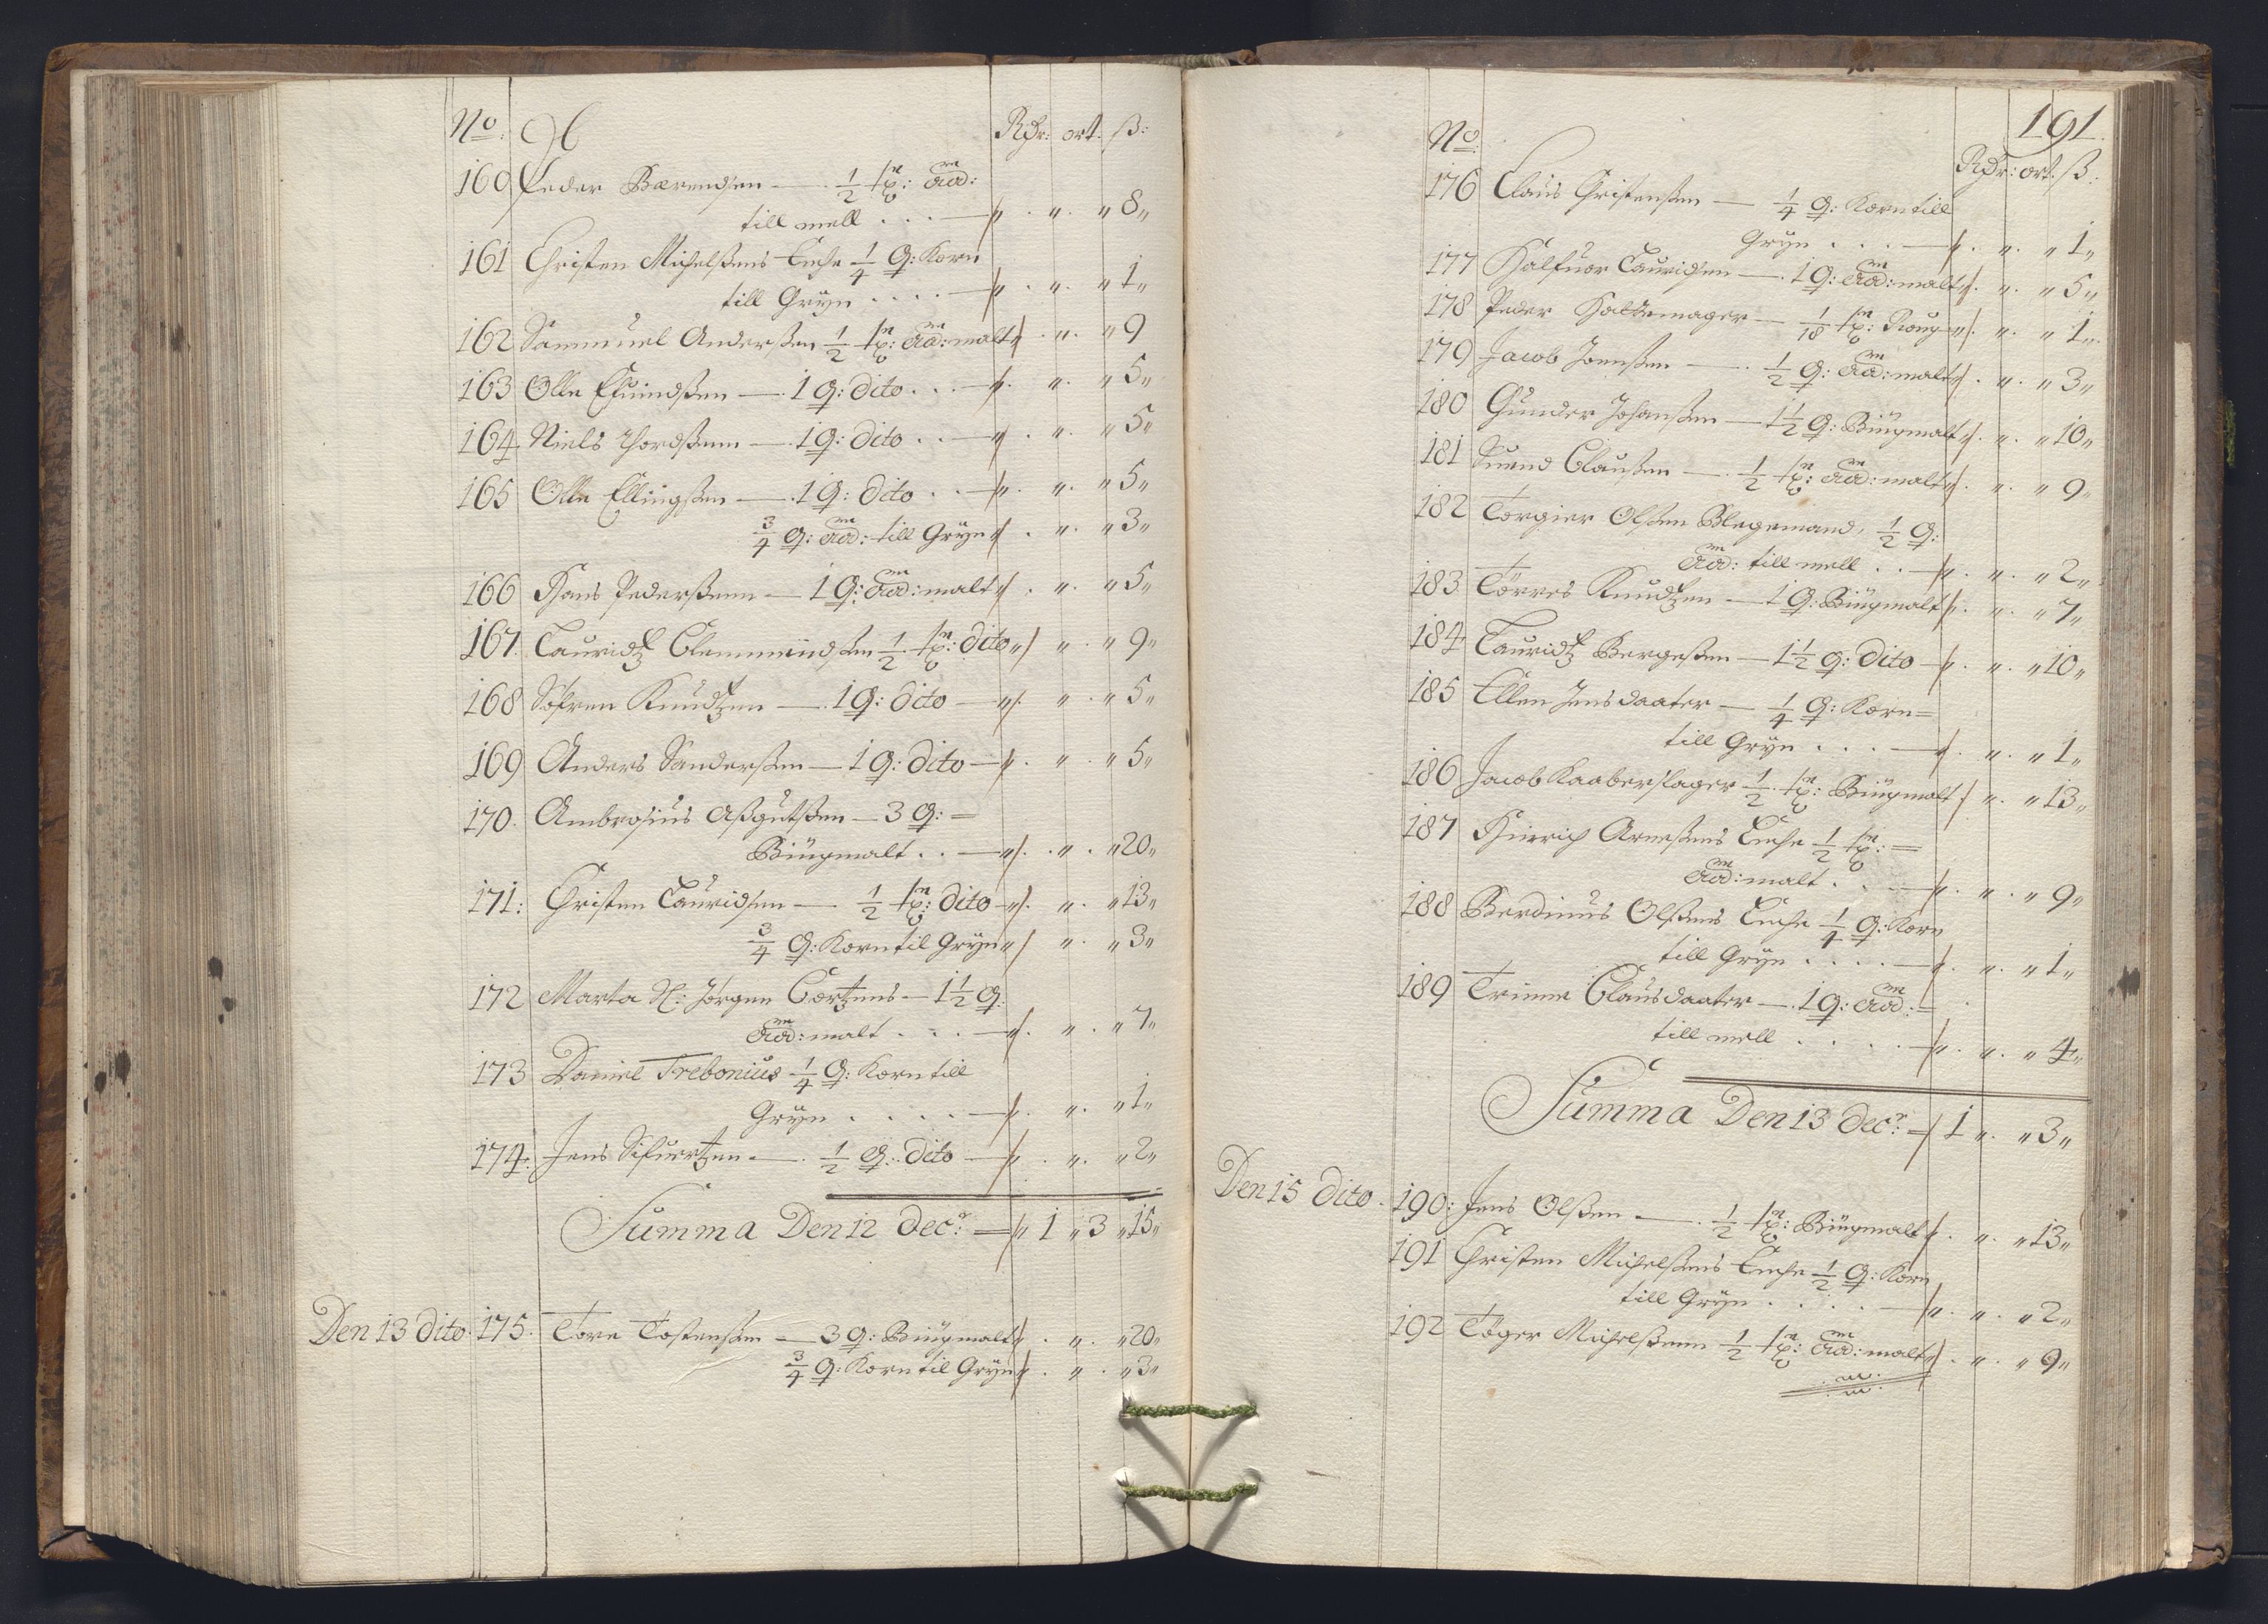 No: Rdr: ort. ß:
160 Peder Bærendsen — 1/2 tn:
till mell . . . — " . " . " 8 "
161 Christen Michelßens Enche 1/4 q: Korn
till Gryn . . . . — " . " . " 1 "
162 Sammuel Anderßen 1/2 tn: malt " . " . " 9
163 Olle Efuindßen — 1 q: dito . . . — " . " . " 5 "
164 Niels Thordßenn — 1 q: dito . . — " . " . " 5 "
165 Olle Ellingßen — 1 q: dito . . — " . " . " 5 "
3/4 q: till Gryn " . " . " 3 "
166 Hans Pederßenn — 1 q: malt " . " . " 5 "
167. Lauridtz Clemmindßen 1/2 tn: dito " " . " 9 "
168 Söfren Knudtzen — 1 q: dito — " . " . " 5 "
169 Anders Sanderßen — 1 q: dito — " . " . " 5 "
170. Ambrosius Aßgutßen — 3 q: =
Biugmalt . . — " . " . " 20 "
171: Christen Lauridsen — 1/2 tn: dito — " . " . " 13 "
3/4 q: Korn til Gryn " " . " 3 "
172 Marta Sl: Jörgen Cortzens — 1 1/2 q:
malt . . . — " . " . " 7 "
173 Daniel Trebonius 1/4 q: Korn till
Gryn . . . . — " . " . " 1 "
174: Jens Sifuertzen — 1/2 q: dito — " . " . " 2 "
Summa Den 12 Decr: = " 1 " 3 " 15 "
Den 13 dito. 175. Tore Tostenßen — 3 q: Biugmalt " . " . " 20 "
3/4 q: Korn til Gryn " . " . " 3 "
191.
No: Rdr: ort. ß:
176 Claus Christenßen — 1/4 q: Korn till
Gryn . . . — " . " . " 1 "
177 Halfuor Lauridsen — 1 q: malt " . " . " 5 "
178 Peder Hattemager — 1/18 tn: Roug — " . " . " 1 "
179 Jacob Joenßen — 1/2 q: malt " . " . " 3 "
180 Gunder Johanßen — 1 1/2 q: Biugmalt " . " . " 10 "
181 Suend Claußen — 1/2 tn: malt " . " . " 9 "
182 Torgier Olßen Blegemand, 1/2 q:
till mell . . — " . " . " 2 "
183 Törres Knudtzen — 1 q: Biugmalt " . " . " 7 "
184 Lauridtz Bergeßen — 1 1/2 q: dito — " . " . " 10 "
185 Ellen Jens daater — 1/4 q: Korn =
till Gryn . . . — " . " . " 1 "
186 Jacob Kaaberslager 1/2 tn: Biugmalt " . " 13 "
187 Hinrich Arneßens Enche 1/2 tn: =
malt . . . — " . " . " 9 "
188 Berdinus Olßens Enche 1/4 q: Korn
till Gryn . . . . — " . " . " 1 "
189 Trinne Claus daater — 1 q: =
till mell . . . . — " . " . " 4 "
Summa Den 13 Decr: — 1 " . " 3 "
Den 15 dito. 190: Jens Olßen — 1/2 tn: Biugmalt " . " . " 13 "
191 Christen Michelßens Enche 1/2 q: Korn
till Gryn . . . . — " . " . " 2 "
192 Töger Michelßenn 1/2 tn: malt " . " . " 9 "